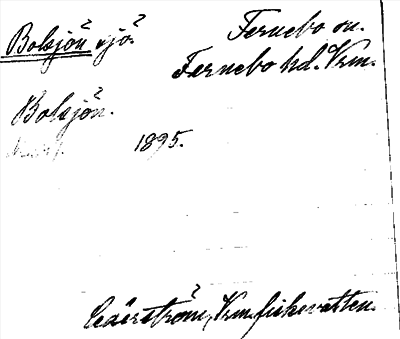 Bolsjön sjö?
Fernebo sn.
Fernebo hd. Vrm.
Bolsjön.
1895.
Cederström, Vrm. fiskevatten.